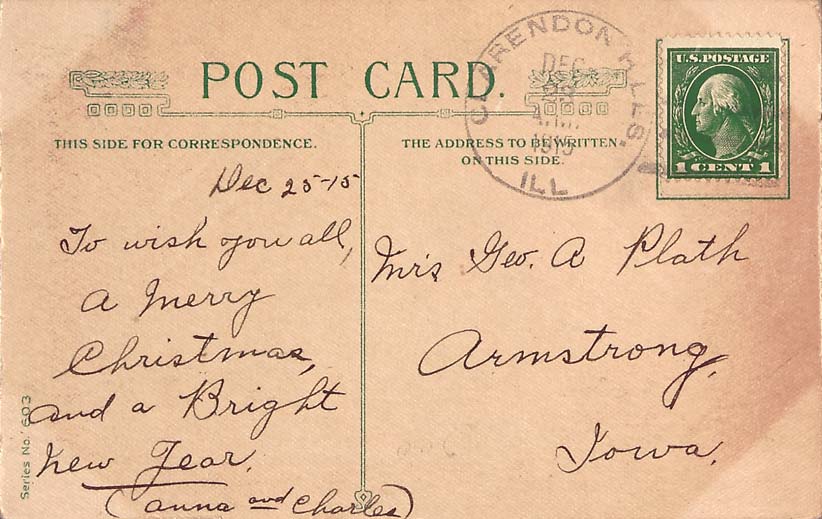 POST CARD.
THIS SIDE FOR CORRESPONDENCE.
THE ADDRESS TO BE WRITTEN
ON THIS SIDE.
CLARENDON HILLS.
DEC
A.M.
1915
ILL
U.S. POSTAGE
1 CENT 1
Dec 25-15
To wish you all,
A Merry
Christmas,
and a Bright
New Year.
(Anna and Charles)
Mrs Geo. A Plath
Armstrong,
Iowa.
Series No. 603